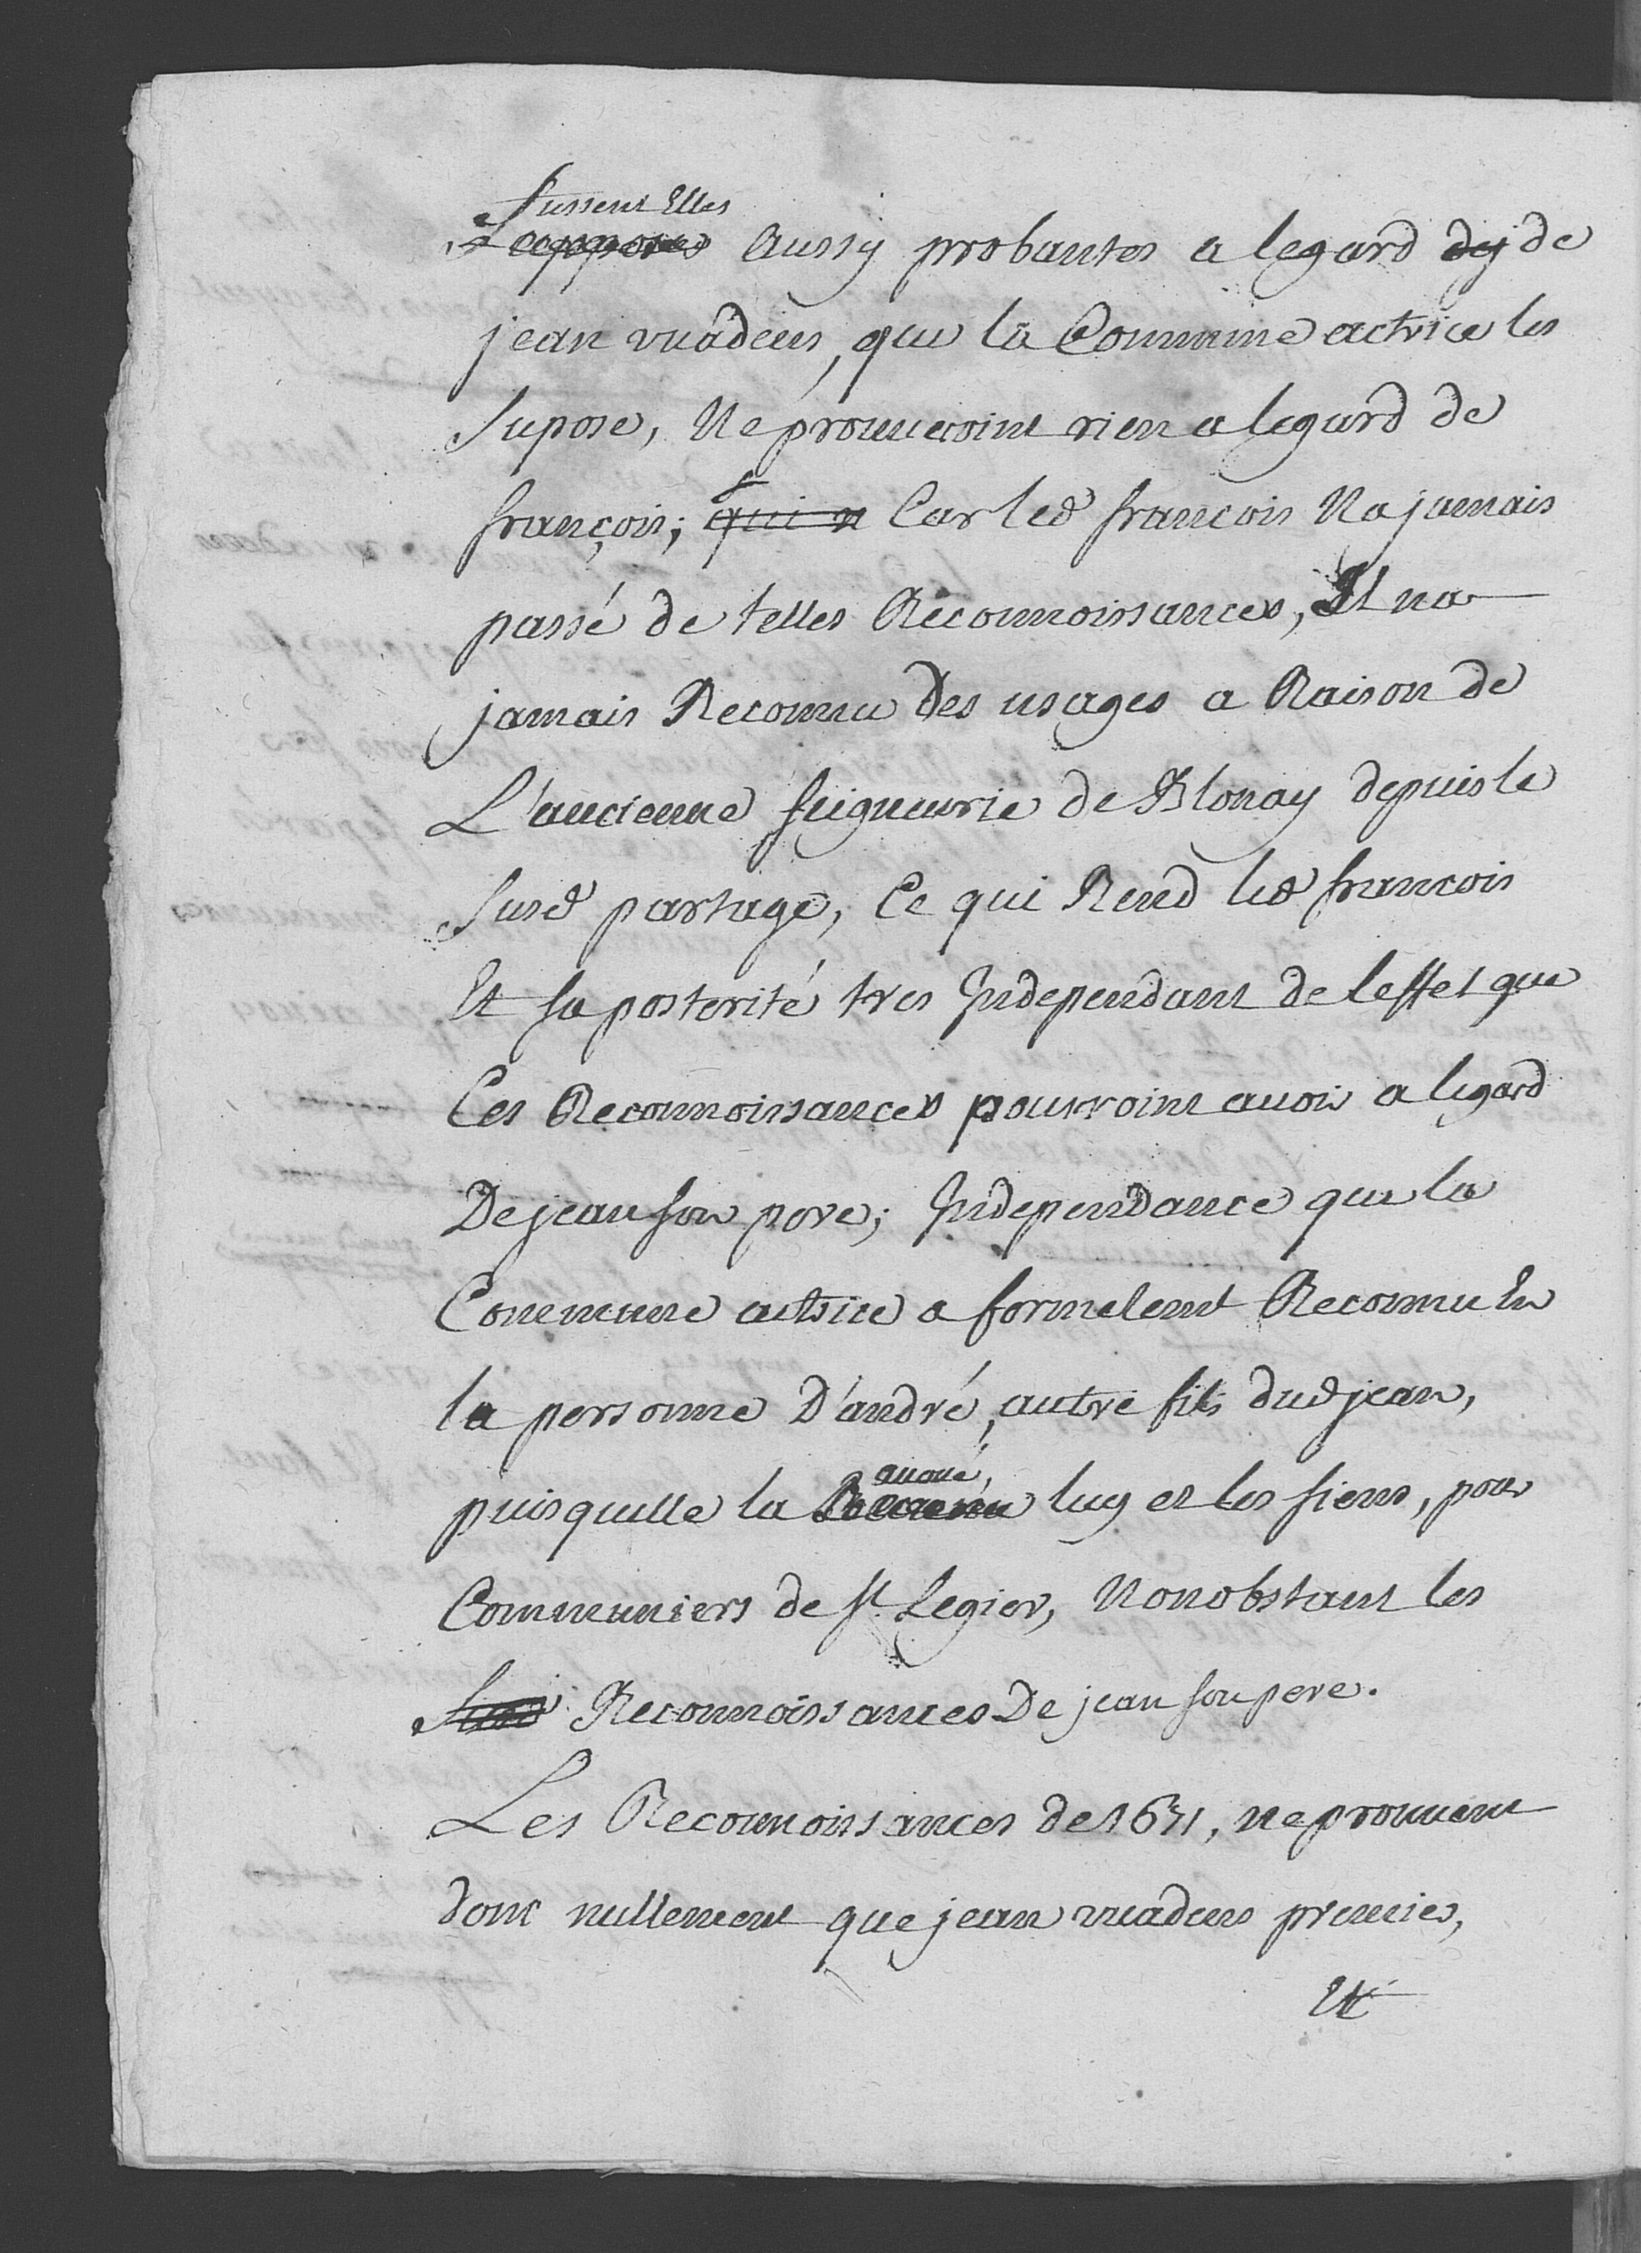 fussent Elles
aussy probantes a legard de
jean vuadens, que la Commune actrice les
supose, Ne prouueroint rien a legard de
françois; qui n Car led françois Na jamais
passé de telles Reconnoissances, Il na
jamais Reconnu Des usages a Raison de
L'ancienne seigneurie de Blonay depuis le
susd partage, Ce qui Rend led francois
Et sa posterité tres Independant de leffet que
Ces Reconnoissances pourroint auoir a legard
De jean son pere; Independance que la
Commune actrice a formelemt Reconnu En
la personne D'andré, autre fils dud jean,
auoué,
puisquelle la Reconnu luy et les siens, pour
Communiers de st. Legier, Nonobstant les
susd Reconnoissances De jean son pere.
Les Reconnoissances de 1671, ne prouuent
donc nullement que jean vuadens premier,
Et